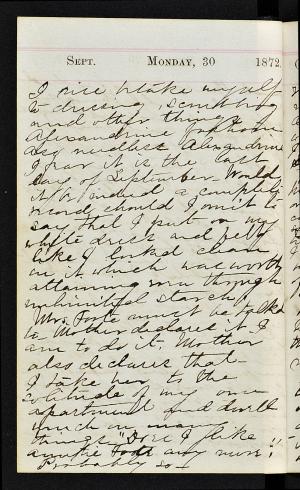 Sept. Monday, 30 1872.
I rise & take myself
to dressing, scrubbing
and other things.
Alexandrine
any needless Alexandrine
I fear it is the last
day of September. Would
it be indeed a complete
record should I omit to
say that I put on my
white dress and felt
like I looked clean
in it which was worth
attaining even through
unlimited starch.
Mrs. Foote must be talked
to Mother declares it. I
am to do it. Mother
also declares that
I take her to the
solitude of my own
apartment and dwell
much on many
things. "Do I like
any more!"
Probably so I